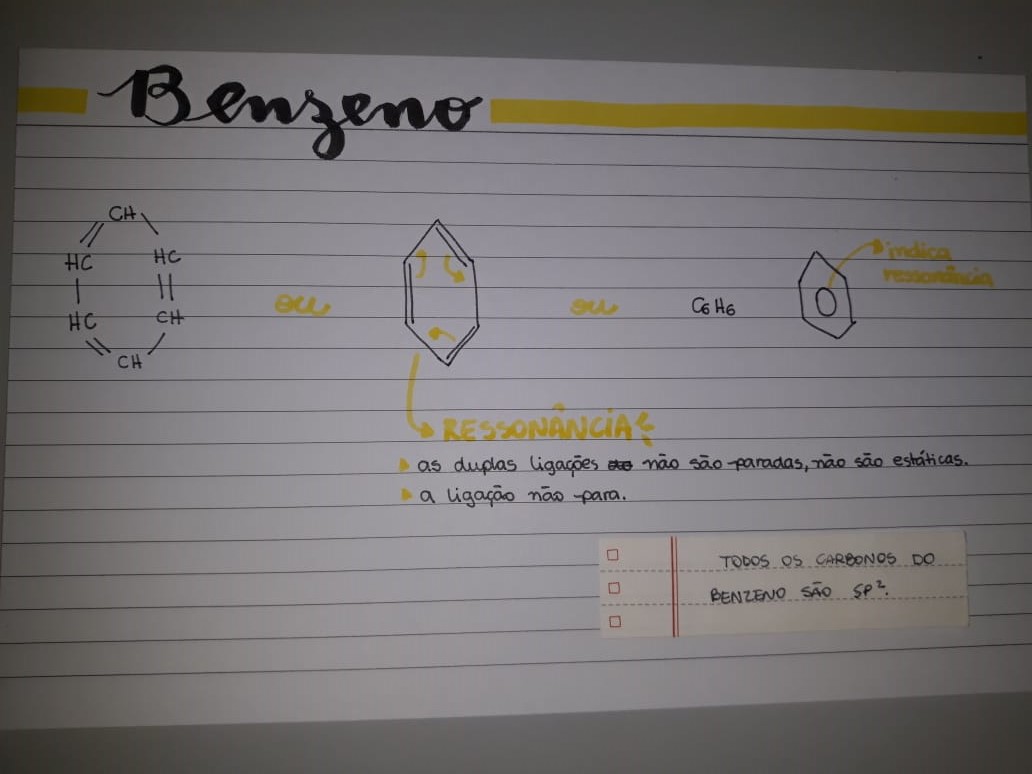 Benzeno
CH
HC HC
HC CH
CH
ou
ou
C6H6
indica
ressonância
RESSONÂNCIA!
as duplas ligações não são paradas, não são estáticas.
a ligação não para.
TODOS OS CARBONOS DO
BENZENO SÃO SP².